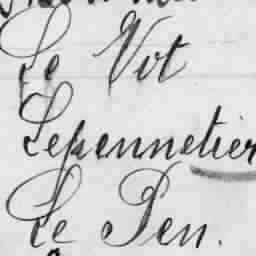 Le Vot
Lepennetier
Le Pen.